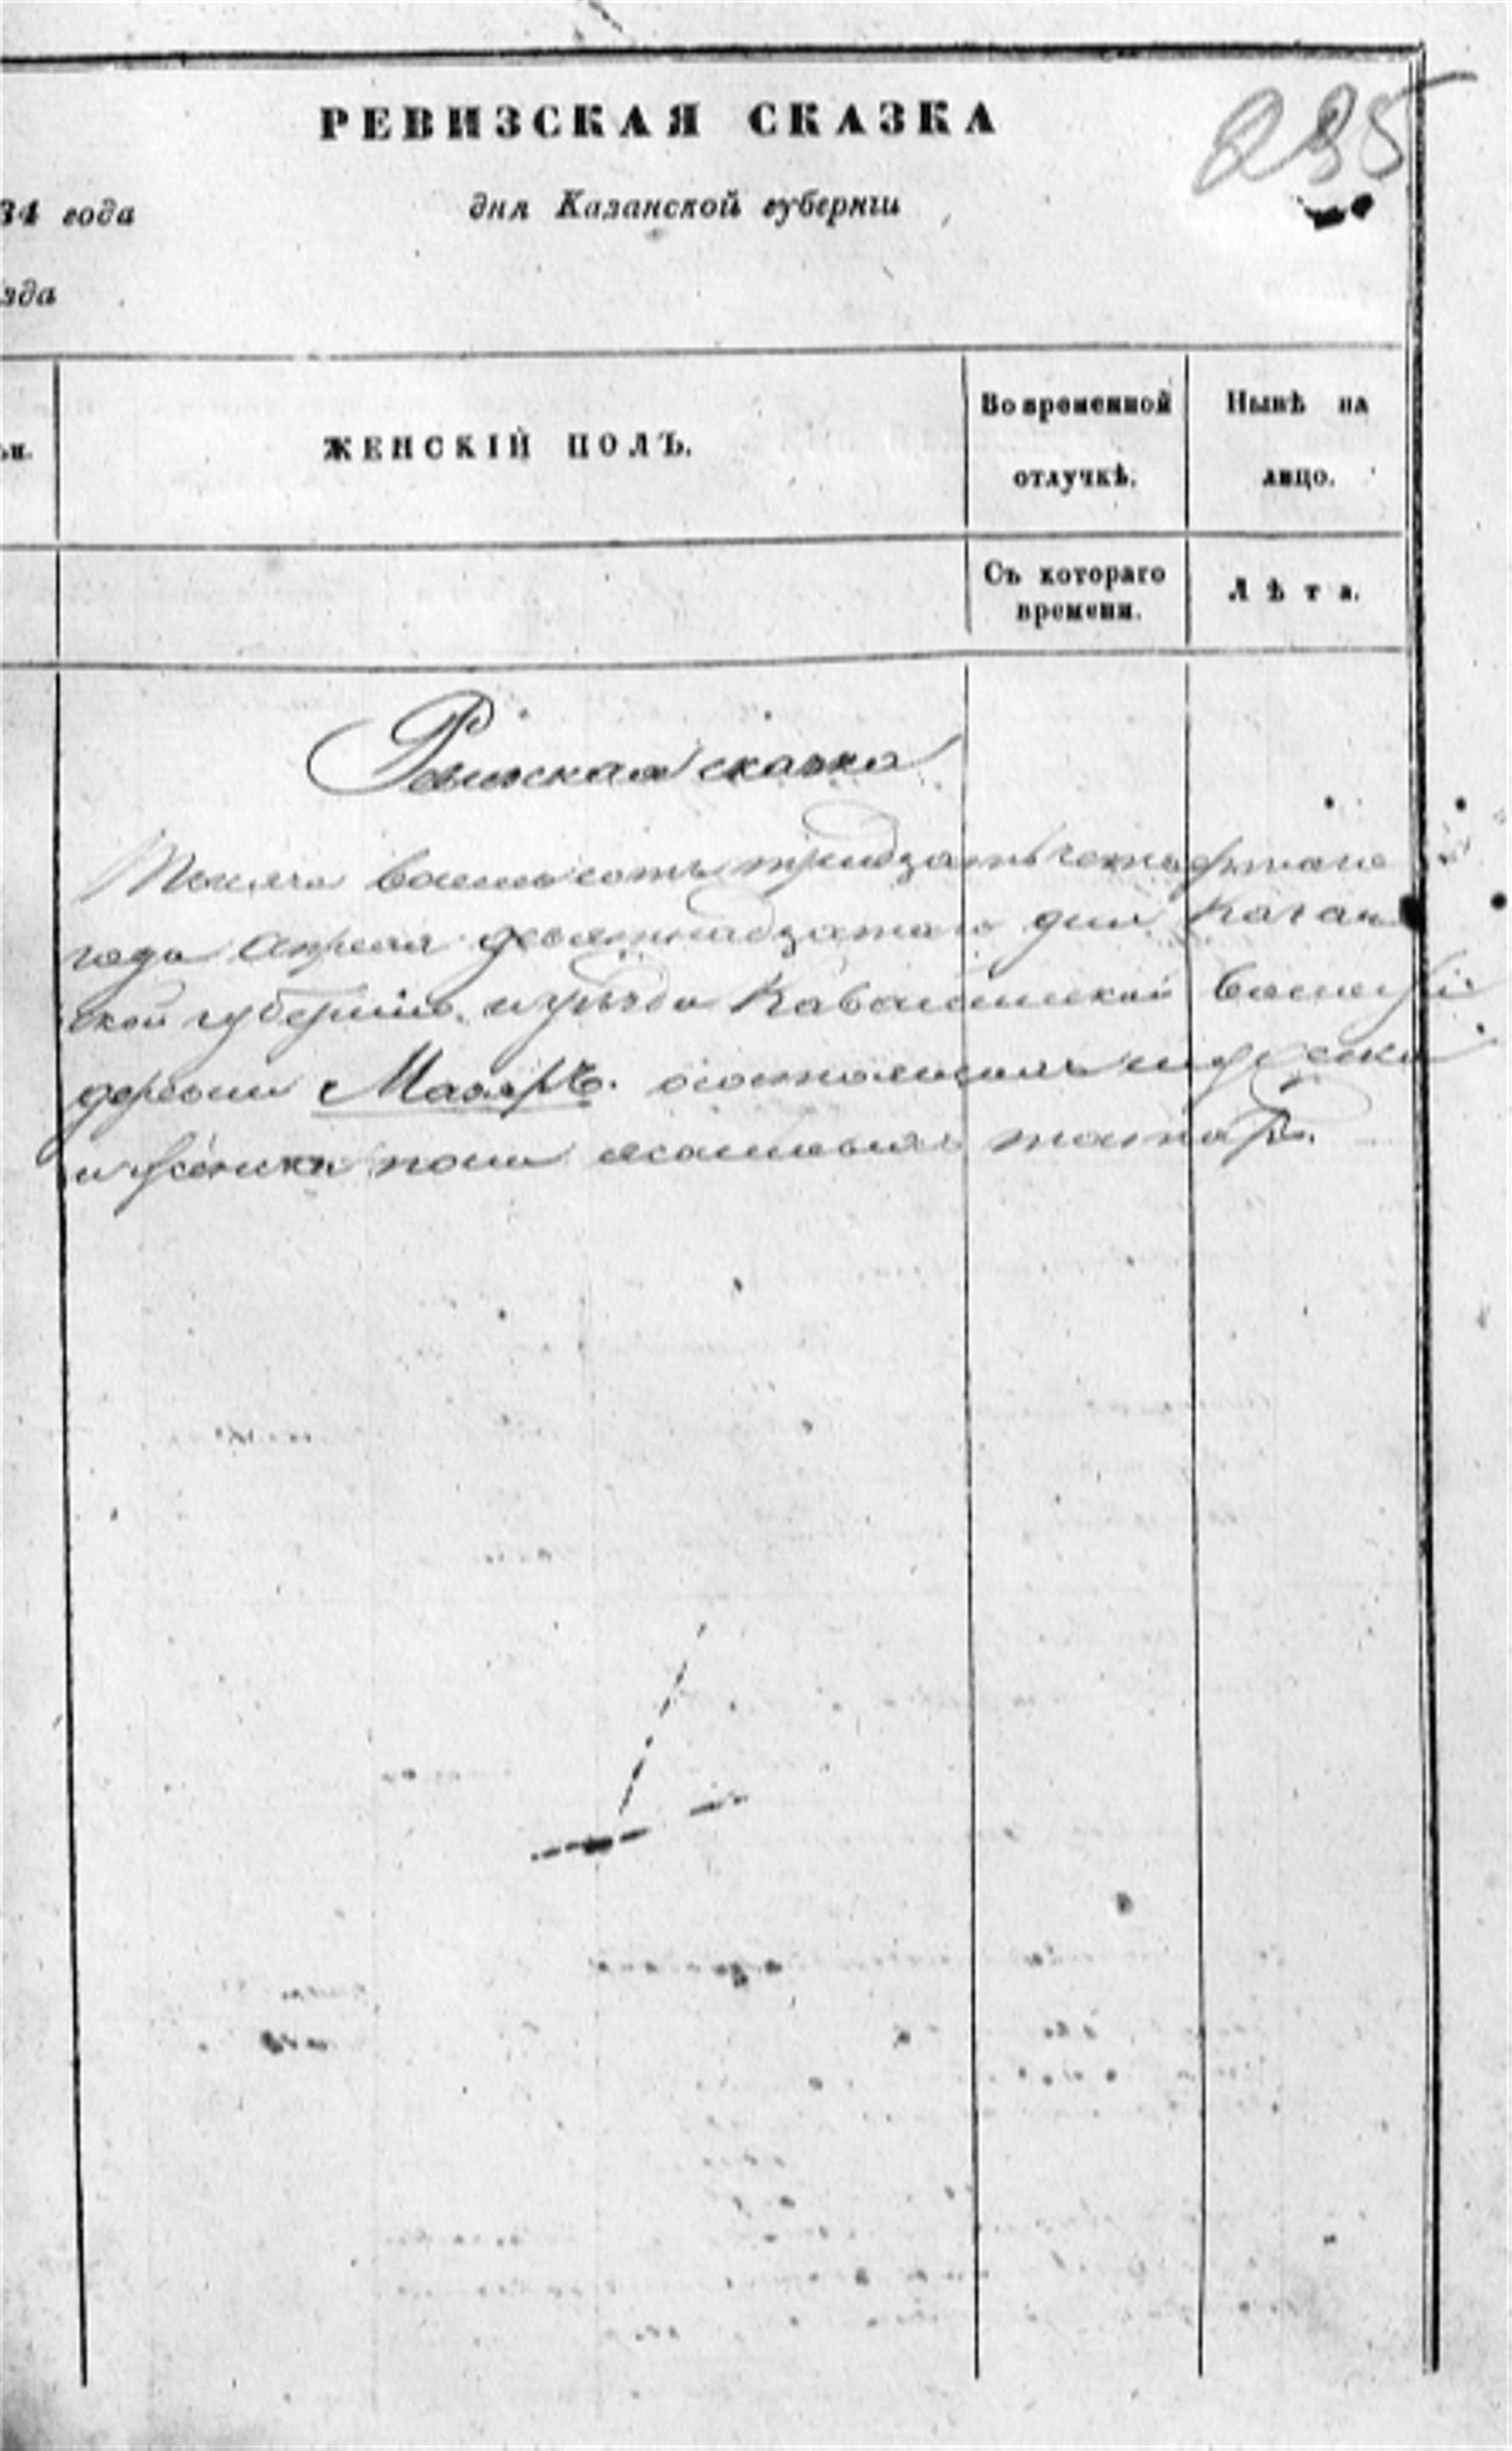 235
РЕВИЗСКАЯ СКАЗКА
34 года дня Казанской губернiи
зда
ЖЕНСКIЙ ПОЛЪ.
Во временной отлучкѣ.
Нынѣ на лицо.
Съ котораго времени.
Лѣта.
Ревизская сказка
Тысяча восемьсотъ тридцать четвертаго
года Апреля девятнадцатаго дня Казан
ской губернiи и уѣзда Кавалинской волости
деревни состоящихъ мужеска
и женска пола ясашныхъ татаръ.